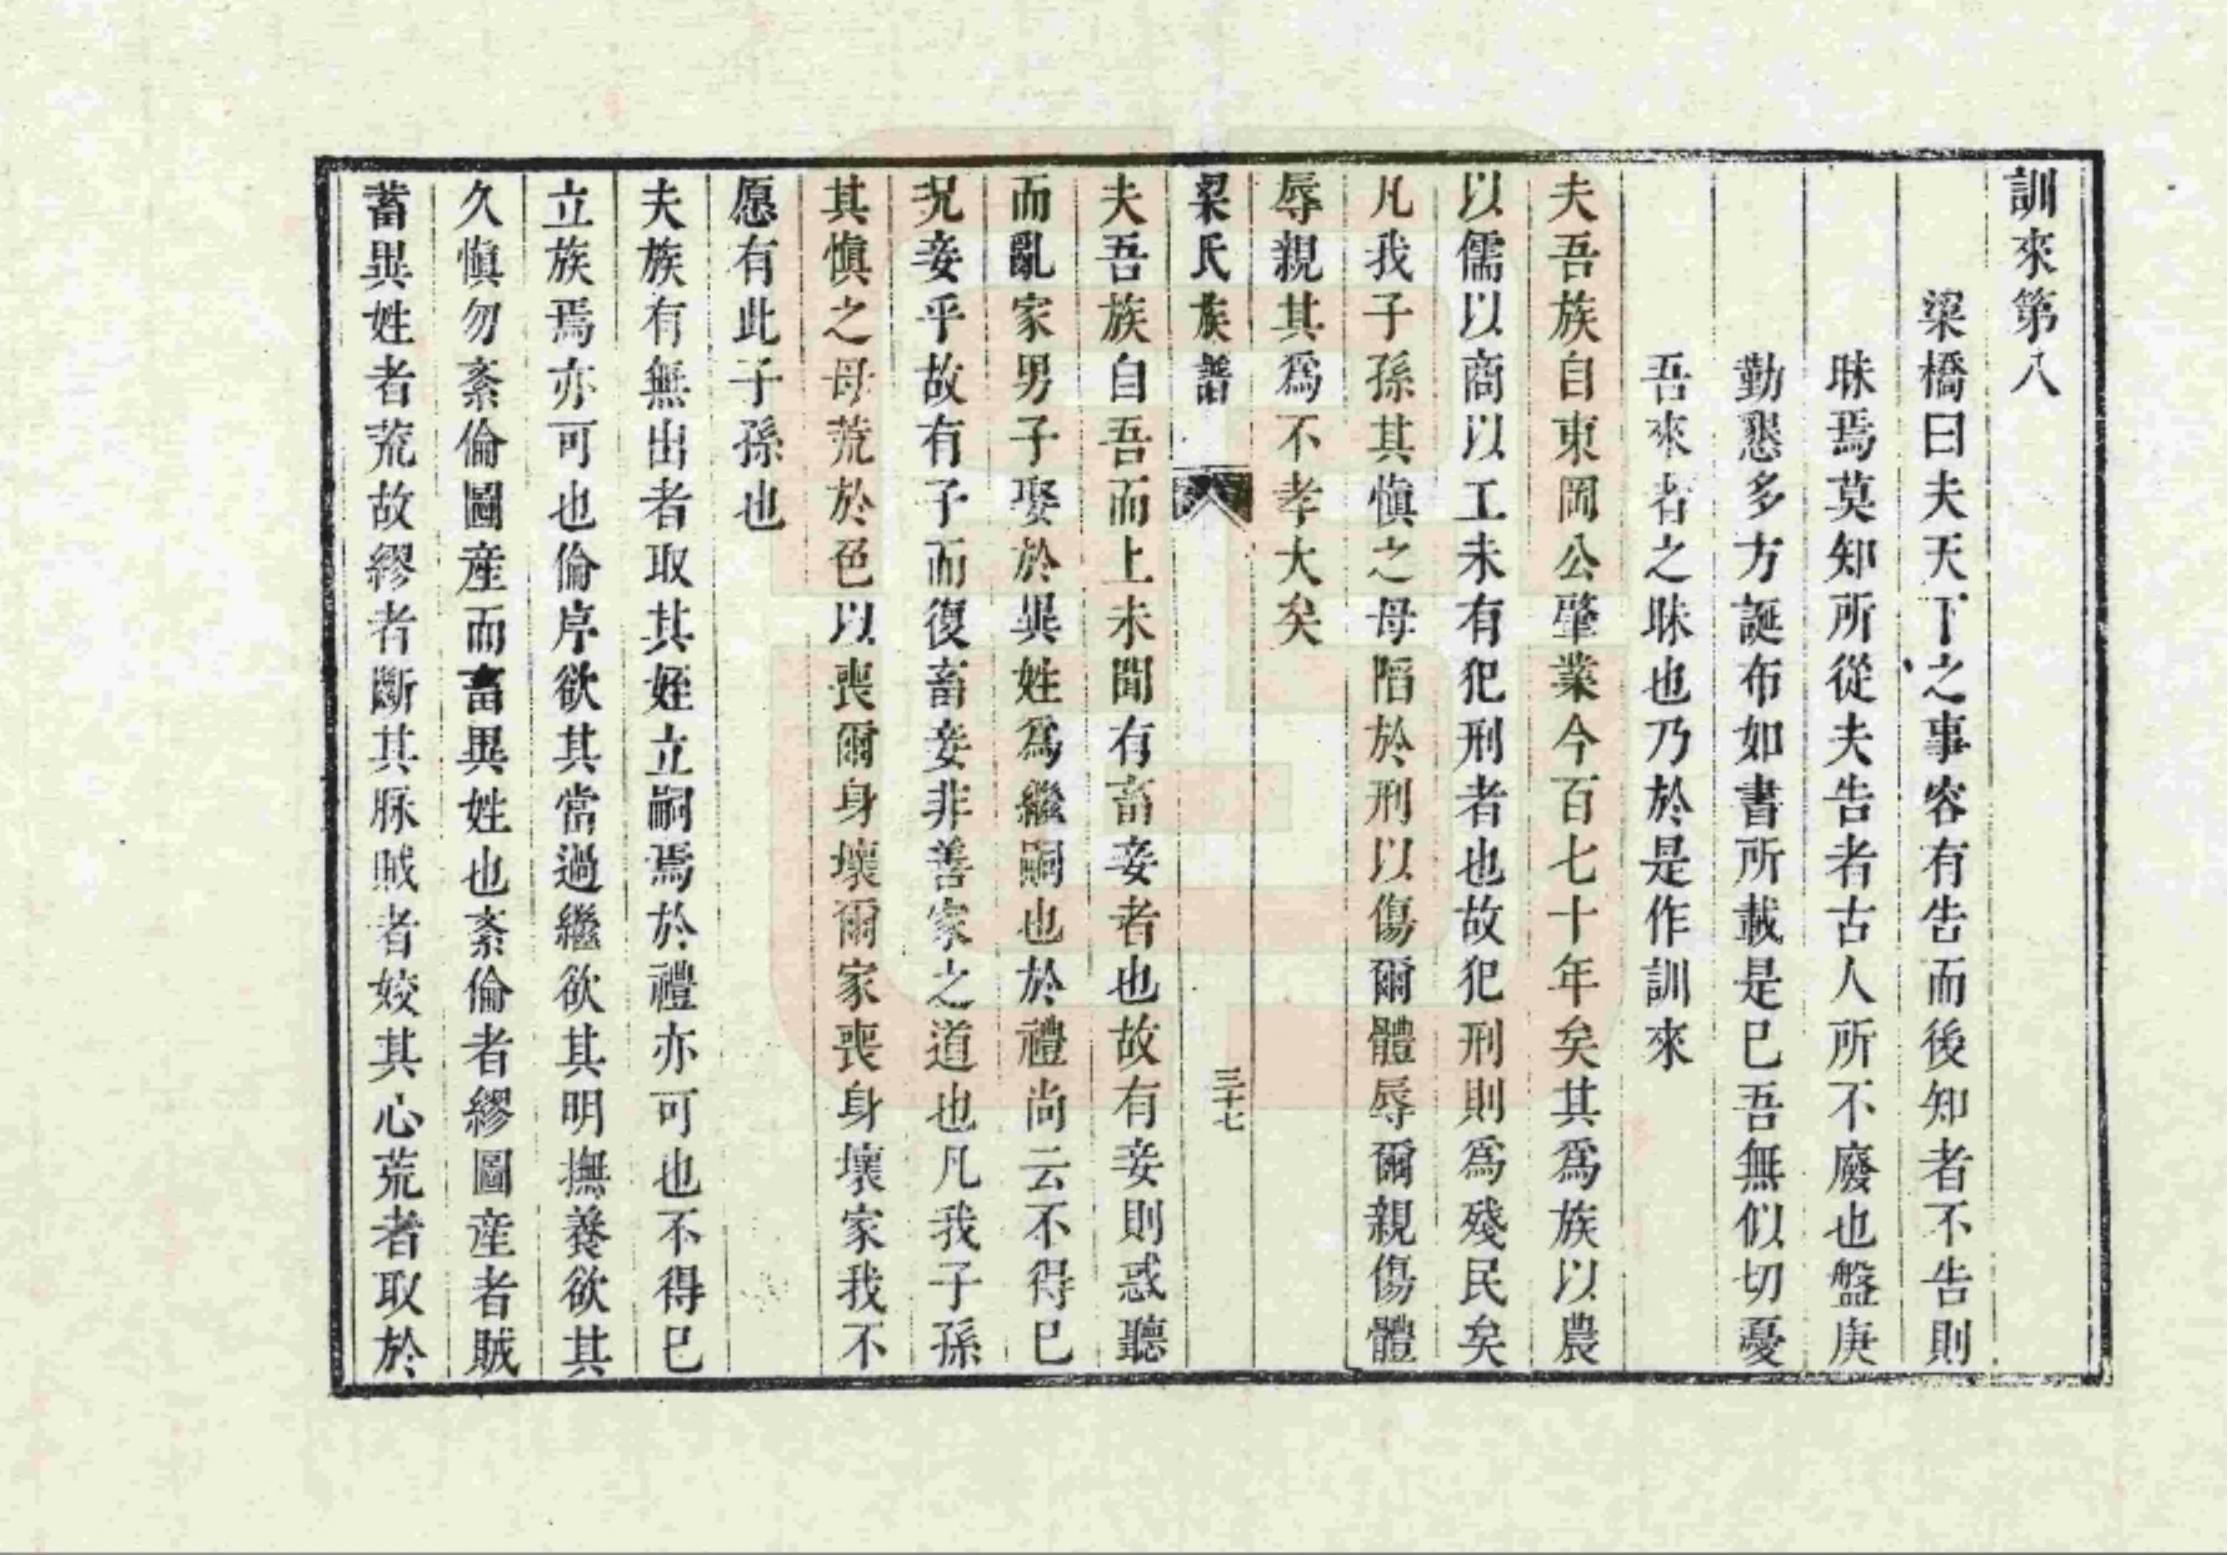 訓來第八
梁橋曰夫天下之事容有告而後知者不告則
昧焉莫知所從夫告者古人所不廢也盤庚
勤懇多方誕布如書所載是巳吾無似切憂
吾來者之昧也乃於是作訓來
夫吾族自東岡公肇業今百七十年矣其爲族以農
以儒以商以工未有犯刑者也故犯刑則爲殘民矣
凡我子孫其愼之毋陷於刑以傷爾體辱爾親傷體
辱親其爲不孝大矣
梁氏族譜
三十七
夫吾族自吾而上未聞有畜妾者也故有妾則惑聽
而亂家男子娶於異姓爲繼嗣也於禮尚云不得巳
況妾乎故有子而復畜妾非善家之道也凡我子孫
其愼之毋荒於色以喪爾身壞爾家喪身壞家我不
愿有此子孫也
夫族有無出者取其姪立嗣焉於禮亦可也不得巳
立族焉亦可也倫序欲其當過繼欲其明撫養欲其
久愼勿紊倫圖産而畜異姓也紊倫者繆圖産者賊
蓄異姓者荒故繆者斷其脉賊者姣其心荒者取於